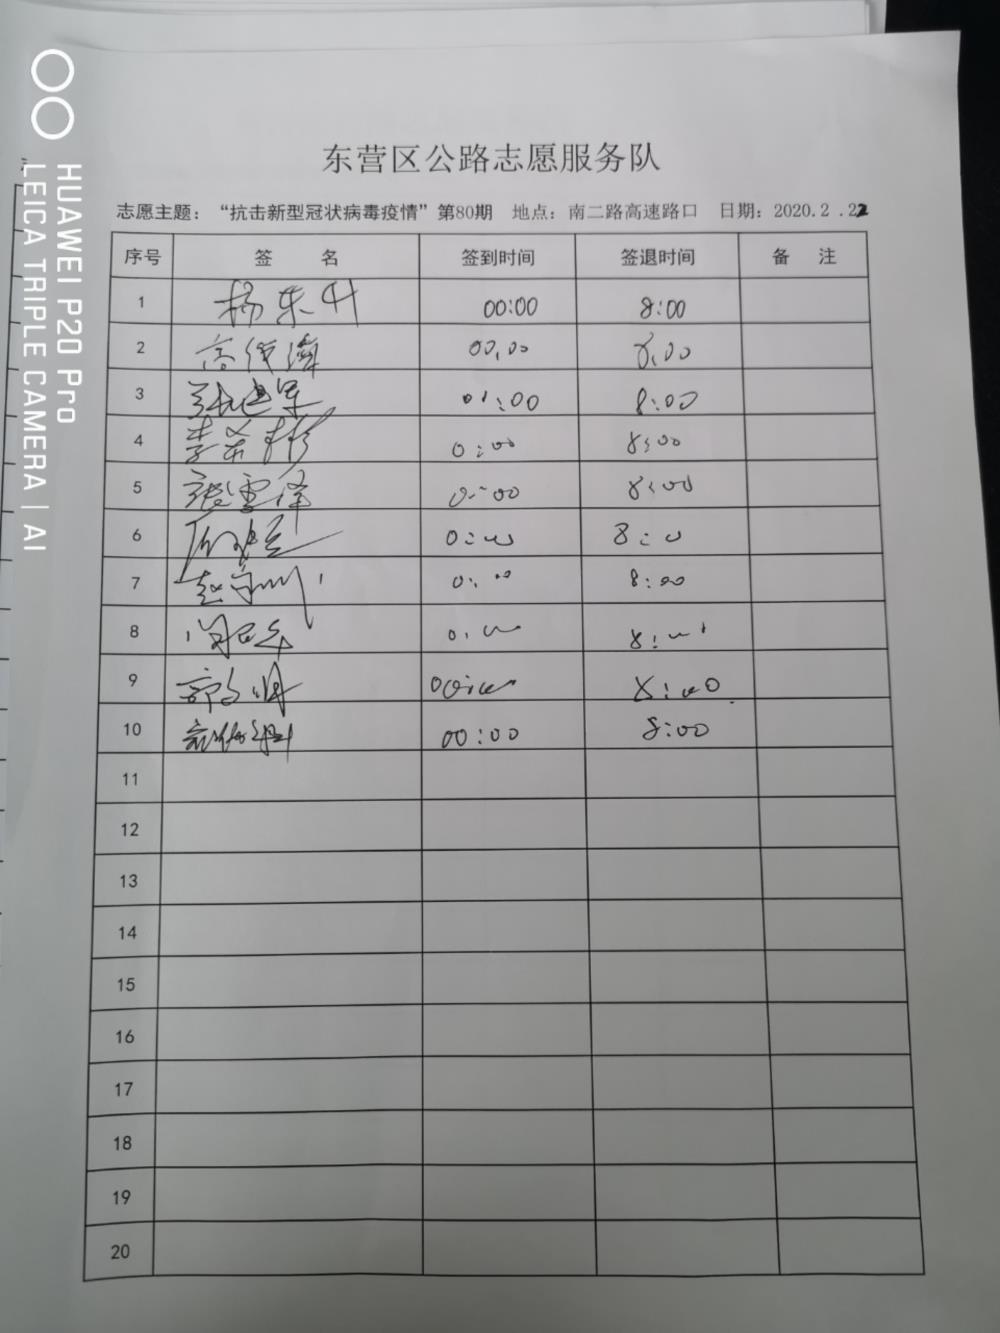 东营区公路志愿服务队
志愿主题：“抗击新型冠状病毒疫情”第80期 地点：南二路高速路口 日期：2020.2.22
序号 签 名 签到时间 签退时间 备 注
1 杨东升 00:00 8:00
2 00:00 8:00
3 张建军 00:00 8:00
4 李希彬 0:00 8:00
5 0:00 8:00
6 0:00 8:00
7 0:00 8:00
8 0:00 8:00
9 00:00 8:00
10 00:00 8:00
11
12
13
14
15
16
17
18
19
20
HUAWEI P20 Pro
LEICA TRIPLE CAMERA | AI